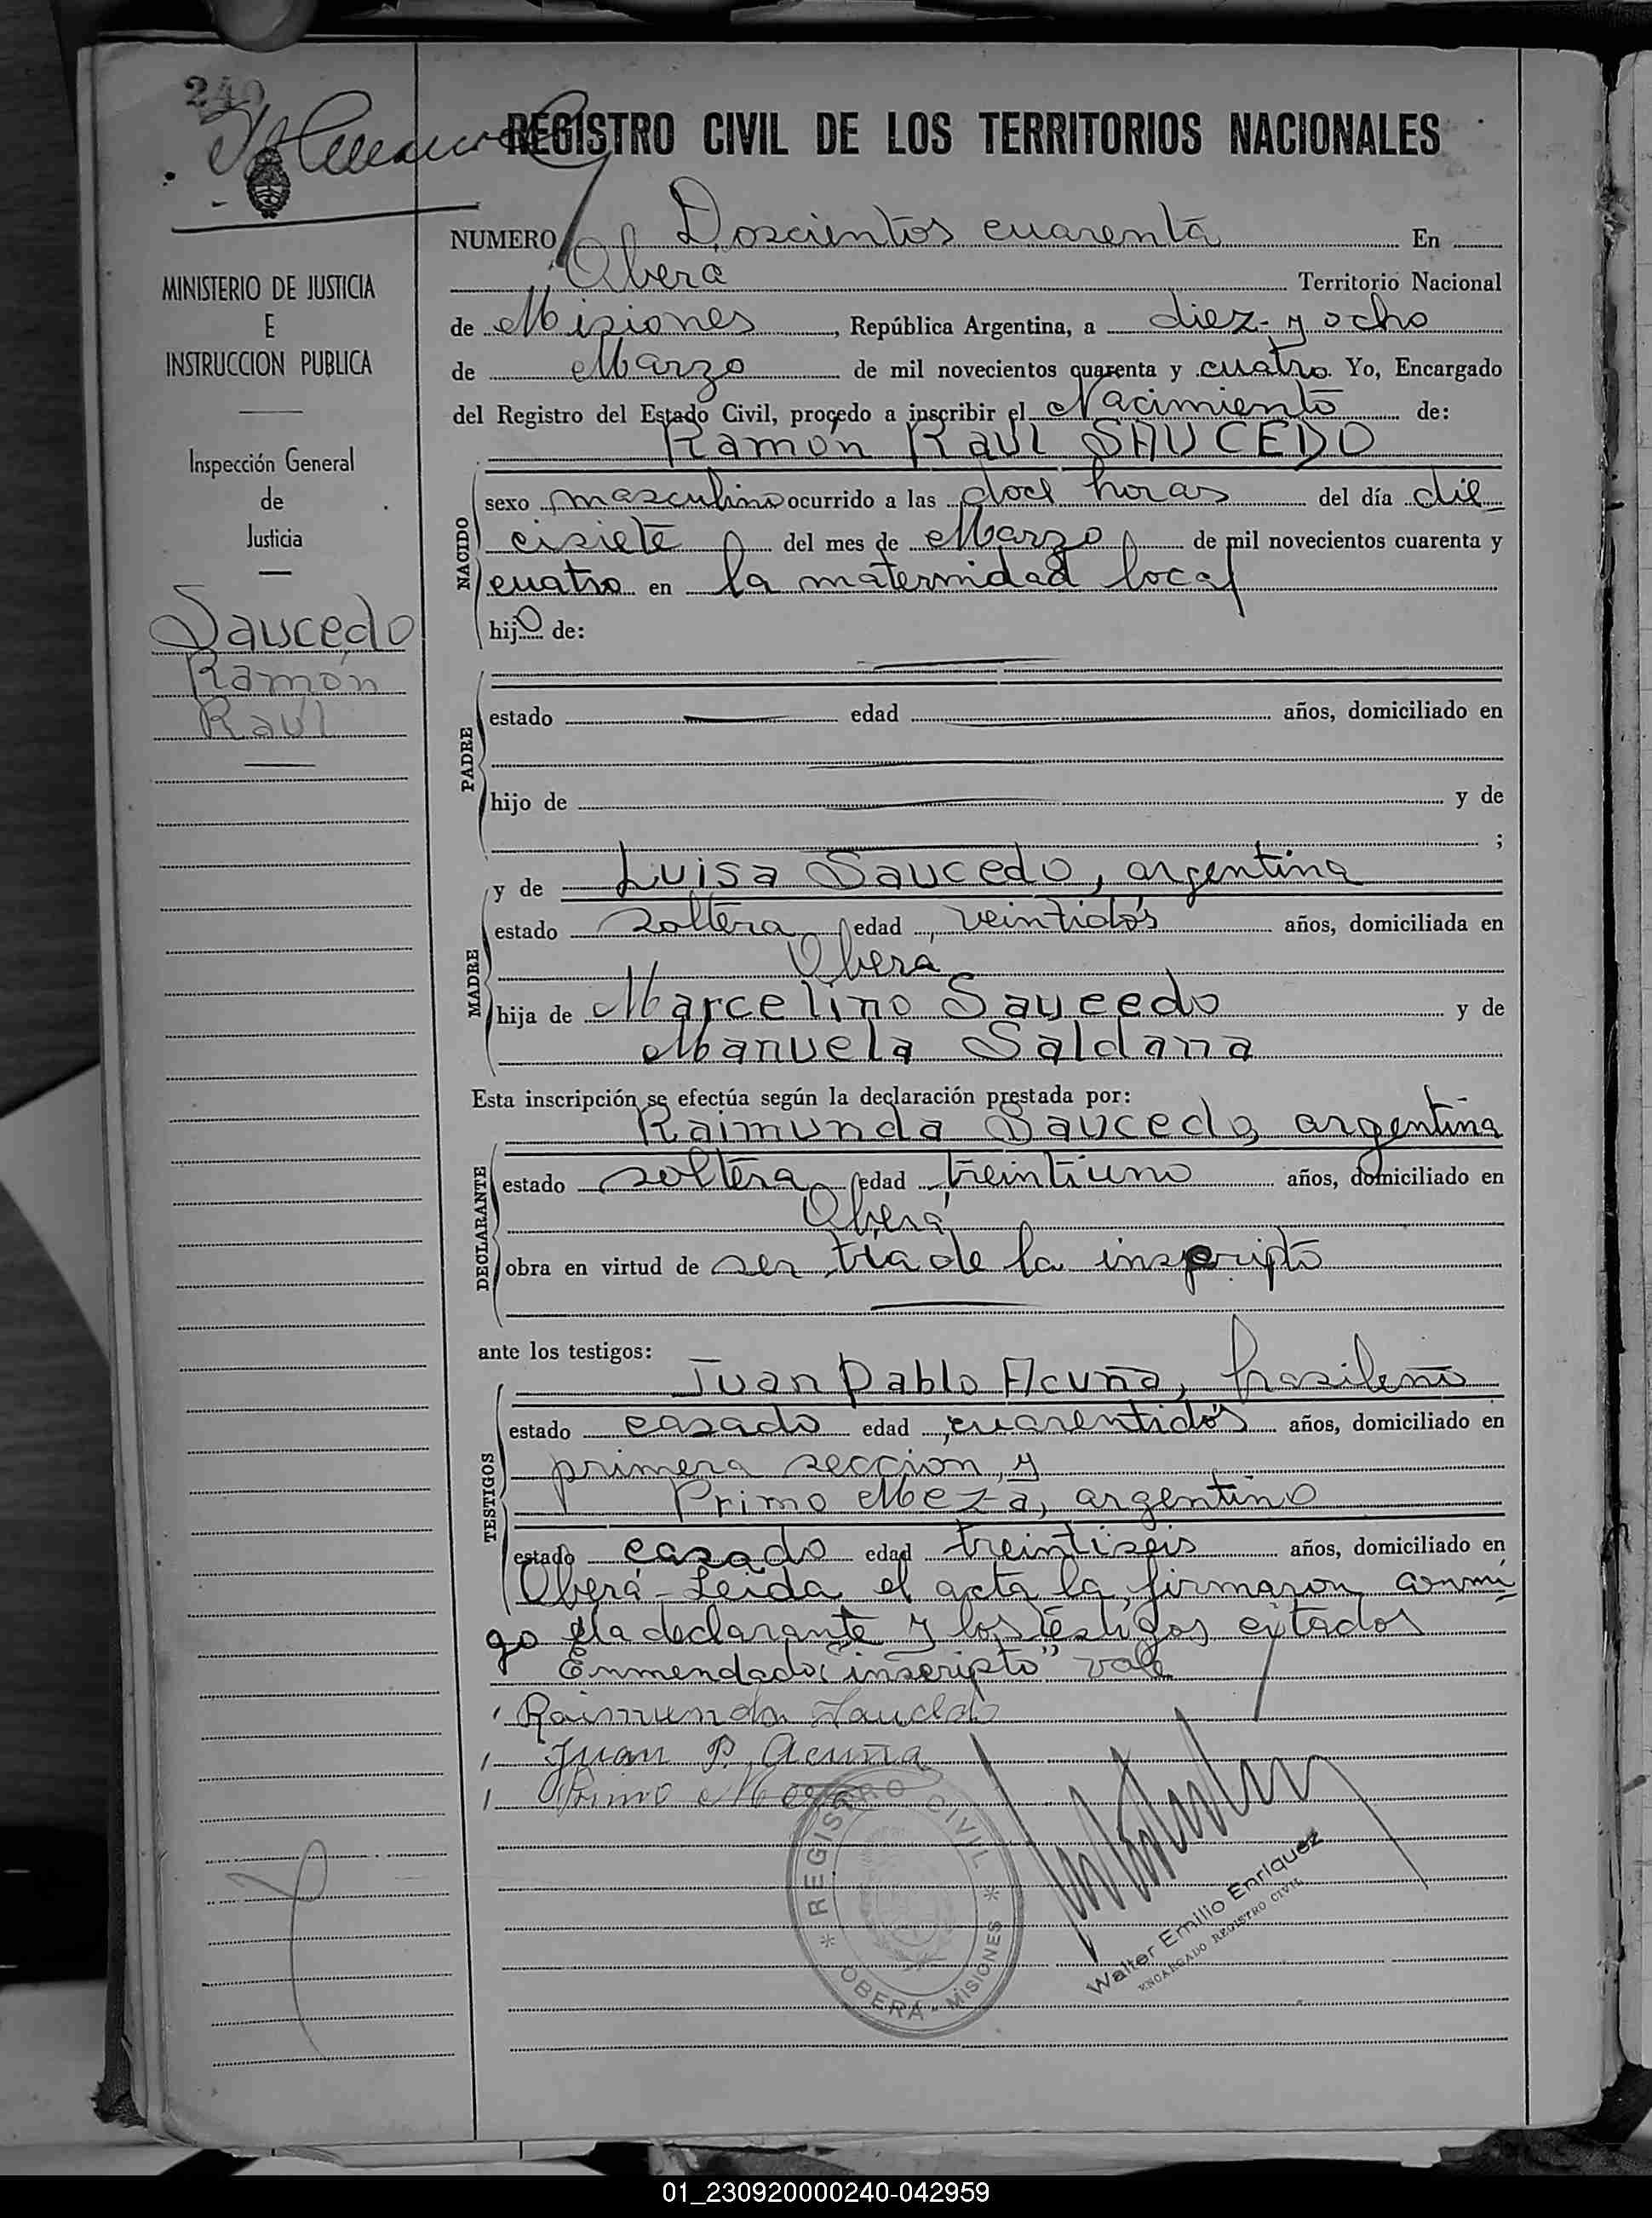 240
REGISTRO CIVIL DE LOS TERRITORIOS NACIONALES
MINISTERIO DE JUSTICIA
E
INSTRUCCION PUBLICA
Inspección General
de
Justicia
Saucedo
Ramón
Raúl
NUMERO Doscientos cuarenta En
Oberá Territorio Nacional
de Misiones, República Argentina, a diez y ocho
de Marzo de mil novecientos cuarenta y cuatro. Yo, Encargado
del Registro del Estado Civil, procedo a inscribir el Nacimiento de:
Ramon Raul SAUCEDO
NACIDO
sexo masculino ocurrido a las doce horas del día die
cisiete del mes de Marzo de mil novecientos cuarenta y
cuatro en la maternidad local
hijo de:
PADRE
estado edad años, domiciliado en
hijo de y de
;
MADRE
y de Luisa Saucedo, argentina
estado soltera, edad, veintidós años, domiciliada en
Oberá
hija de Marcelino Saucedo y de
Manuela Saldana
Esta inscripción se efectúa según la declaración prestada por:
DECLARANTE
Raimunda Saucedo, argentina
estado soltera, edad treintiuno años, domiciliado en
Oberá
obra en virtud de ser tia de la inscripto
ante los testigos:
TESTIGOS
Juan Pablo Acuña, brasileño
estado casado edad, cuarentidós años, domiciliado en
primera seccion, y
Primo Meza, argentino
estado casado edad treintiseis años, domiciliado en
Oberá-Leida el acta la firmaron conmi
go la declarante y los testigos citados
Enmendado: "inscripto" vale
Raimunda Saucedo
Juan P. Acuña
Primo Meza
REGISTRO CIVIL
OBERA - MISIONES
Walter Emilio Enriquez
ENCARGADO REGISTRO CIVIL
01_230920000240-042959